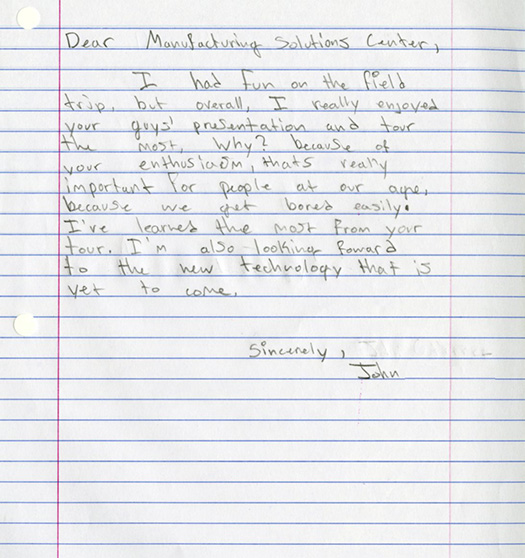 Dear Manufacturing Solutions Center,
I had fun on the field
trip, but overall, I really enjoyed
your guys' presentation and tour
the most, Why? because of
your enthusiasm, thats really
important for people at our age,
because we get bored easily.
I've learned the most from your
tour. I'm also looking foward
to the new technology that is
yet to come.
Sincerely,
John